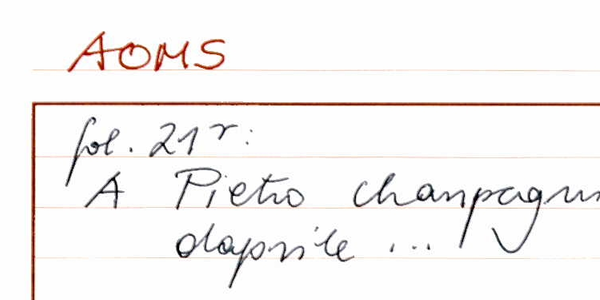 AOMS
fol. 21r:
A Pietro chanpagn
daprile ...